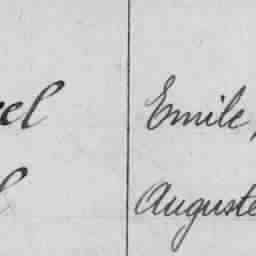 el Emile,
l Auguste